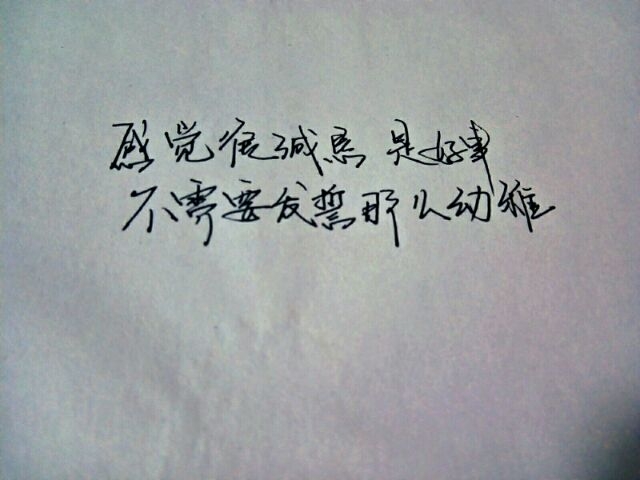 感觉很诚恳 是好事
不需要发誓那么幼稚